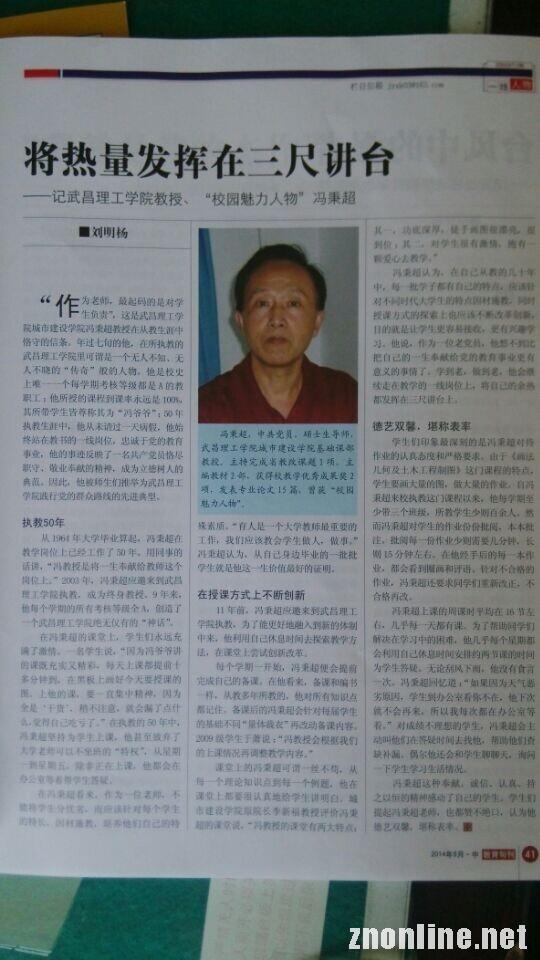 一线 人物
栏目信箱
将热量发挥在三尺讲台
——记武昌理工学院教授、“校园魅力人物”冯秉超
■刘明杨
“作为老师，最起码的是对学
生负责”，这是武昌理工学
院城市建设学院冯秉超教授在从教生涯中
恪守的信条。年过七旬的他，在所执教的
武昌理工学院里可谓是一个无人不知、无
人不晓的“传奇”般的人物。他是校史
上唯一一个每学期考核等级都是A的教
职工；他所授的课程到课率永远是100%。
其所带学生皆尊称其为“冯爷爷”；50年
执教生涯中，他从未请过一天病假，他始
终站在教书的一线岗位，忠诚于党的教育
事业，他的事迹反映了一名共产党员恪尽
职守、敬业奉献的精神，成为立德树人的
典范。因此，他被师生们推举为武昌理工
学院践行党的群众路线的先进典型。
执教50年
从1964年大学毕业算起，冯秉超在
教学岗位上已经工作了50年。用同事的
话讲，“冯教授是将一生奉献给教师这个
岗位上。”2003年，冯秉超应邀来到武昌
理工学院执教，成为终身教授。9年来，
他每个学期的所有考核等级全A，创造了
一个武昌理工学院绝无仅有的“神话”。
在冯秉超的课堂上，学生们永远充
满了激情。一名学生说，“因为冯爷爷讲
的课既充实又精彩，每天上课都提前十
多分钟到，在黑板上画好今天要授课的
图。上他的课，要一直集中精神，因为
全是‘干货’，稍不注意，就会漏了点什
么，觉得自己吃亏了。”在执教的50年中，
冯秉超坚持为学生上课，他甚至放弃了
大学老师可以不坐班的“特权”，从星期
一到星期五，除非正在上课，他都会在
办公室等着帮学生答疑。
在冯秉超看来，作为一位老师，不
能将学生分优劣，而应该针对每个学生
的特长，因材施教，培养他们自己的特
冯秉超，中共党员，硕士生导师，
武昌理工学院城市建设学院基础课部
教授。主持完成省教改课题1项，主
编教材2部，获得校教学优秀成果奖2
项，发表专业论文15篇，曾获“校园
魅力人物”。
殊素质。“育人是一个大学教师最重要的
工作，我们应该教会学生做人，做事。”
冯秉超认为，从自己身边毕业的一批批
学生就是他这一生价值最好的证明。
在授课方式上不断创新
11年前，冯秉超应邀来到武昌理工
学院执教，为了能更好地融入到新的体制
中来，他利用自己休息时间去探索教学方
法，在课堂上尝试创新改革。
每个学期一开始，冯秉超便会提前
完成自己的备课。在他看来，备课和编书
一样。从教多年所教的，他对所有知识点
都记住，备课后的冯秉超会针对每届学生
的基础不同“量体裁衣”再改动备课内容。
2009级学生于萧说：“冯教授会根据我们
的上课情况再调整教学内容。”
课堂上的冯秉超可谓一丝不苟，从
每一个理论知识点到每一个例题，他在
课堂上都要很认真地给学生讲明白。城
市建设学院原院长李新福教授评价冯秉
超的课堂说，“冯教授的课堂有两大特点：
其一，功底深厚，徒手画图很漂亮，很
到位；其二，对学生很有激情，抱有一
颗爱心去教学。”
冯秉超认为，在自己从教的几十年
中，每一批学子都有自己的特点，应该针
对不同时代大学生的特点因材施教，同时
授课方式的探索上也应该不断改革创新，
目的就是让学生更容易接收，更有兴趣学
习。他说，作为一位老党员，他想不到比
把自己的一生奉献给党的教育事业更有
意义的事情了。学到老，做到老，他会继
续走在教学的一线岗位上，将自己的余热
都发挥在三尺讲台上。
德艺双馨，堪称表率
学生们印象最深刻的是冯秉超对待
作业的认真态度和严格要求。由于《画法
几何及土木工程制图》这门课程的特点，
学生要画大量的图，做大量的作业。自冯
秉超来校执教这门课程以来，他每学期至
少带三个班级，所教学生少则百余人。然
而冯秉超对学生的作业份份批阅，本本批
注，批阅每一份作业少则需要几分钟，长
则15分钟左右。在他经手后的每一本作
业，都会看到圈画和评语。针对不合格的
作业，冯秉超还要求同学们重新改正，不
合格再改。
冯秉超上课的周课时平均在16节左
右，几乎每一天都有课。为了帮助同学们
解决在学习中的困难，他几乎每个星期都
会利用自己休息时间安排的两节课的时间
为学生答疑。无论刮风下雨，他没有食言
一次。冯秉超回忆道：“如果因为天气恶
劣原因，学生到办公室看你不在，他下次
就不会再来。所以我每次都在办公室等
着。”对成绩不理想的学生，冯秉超会主
动叫他们在答疑时间去找他，帮助他们查
缺补漏。偶尔他还会和学生聊聊天，询问
一下学生学习生活情况。
冯秉超这种奉献、诚信、认真、持
之以恒的精神感动了自己的学生。学生们
提起冯秉超老师，也都赞不绝口，认为他
德艺双馨，堪称表率。
2014年5月·中 教育周刊 41
znonline.net